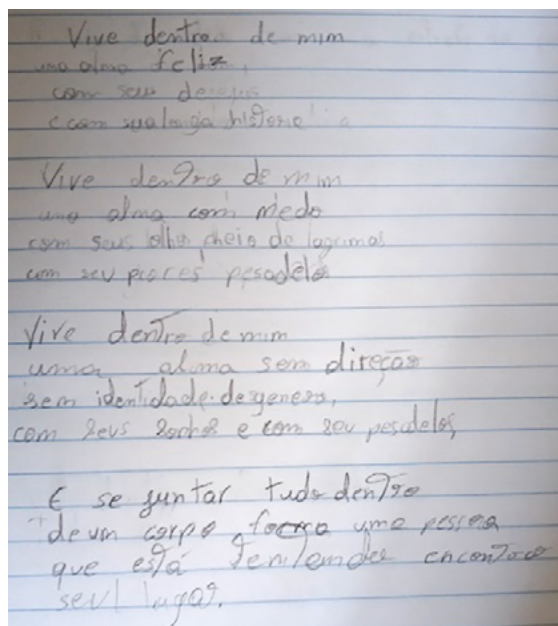 Vive dentro de mim
uma alma feliz
com seus desejos
e com sua longa historia
Vive dentro de mim
uma alma com medo
com seus olho cheio de lagrimas
com seu piores pesadelos
Vive dentro de mim
uma alma sem direção
sem identidade de genero,
com seus sonhos e com seu pesadelos,
E se juntar tudo dentro
de um corpo forma uma pessoa
que está tentando encontrar
seu lugar.